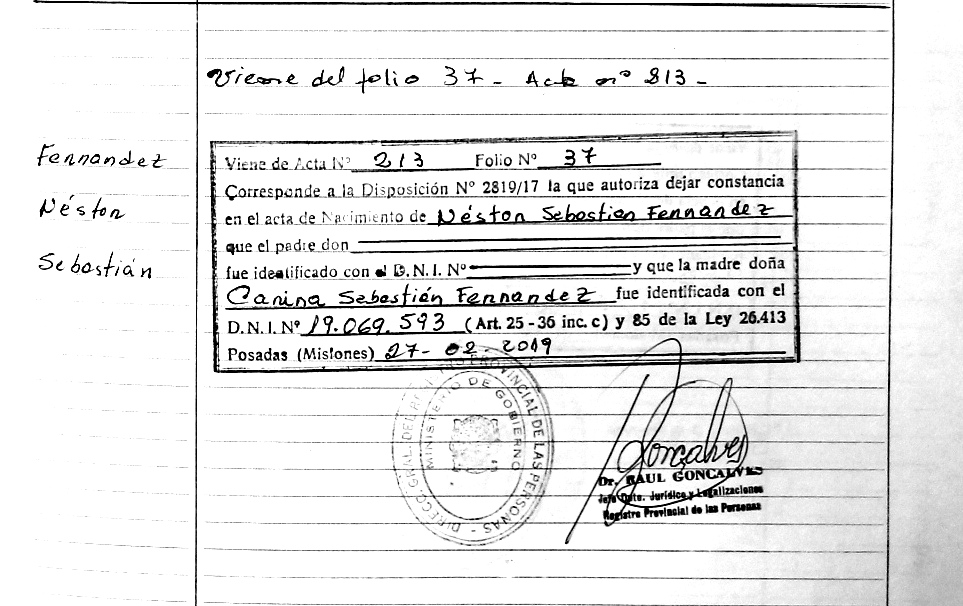 Viene del folio 37 - Acta nº 213 -
Fernandez
Néstor
Sebastián
Viene de Acta Nº 213 Folio Nº 37
Corresponde a la Disposición Nº 2819/17 la que autoriza dejar constancia
en el acta de Nacimiento de Néstor Sebastian Fernandez
que el padre don
fue identificado con el D.N.I. Nº y que la madre doña
Carina Sebastián Fernandez fue identificada con el
D.N.I. Nº 19.069.593 (Art. 25 - 36 inc. c) y 85 de la Ley 26.413
Posadas (Misiones) 27-02-2019
PROVINCIAL DE LAS PERSONAS - DIRECC. GRAL. DEL
MINISTERIO DE GOBIERNO
Goncalves
Dr. RAUL GONCALVES
Jefe Dpto. Jurídico y Legalizaciones
Registro Provincial de las Personas